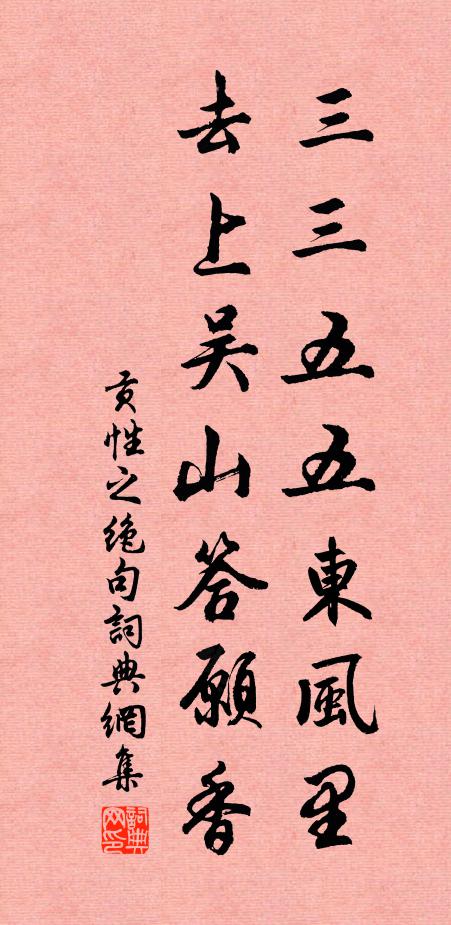 三三五五東風里
去上吴山答願香
贡性之絶句詞典網集
詞典
网印